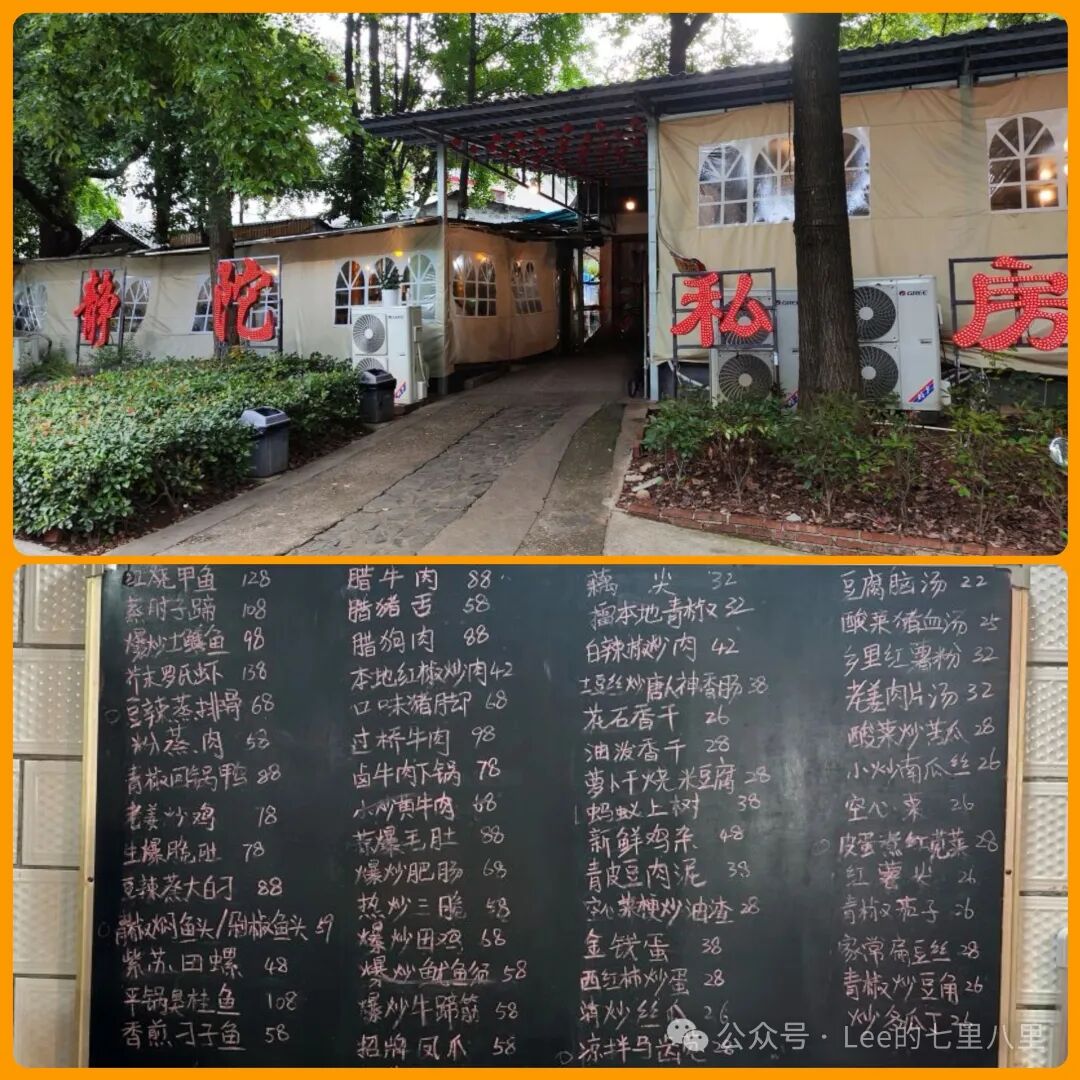 静陀私房
GREE
GREE
红烧甲鱼 128
蒸肘子蹄 108
爆炒土鳝鱼 98
芥末罗氏虾 138
豆辣蒸排骨 68
粉蒸肉 58
青椒回锅鸭 88
老姜炒鸡 78
生爆脆肚 78
豆辣蒸大白刁 88
青椒焖鱼头/剁椒鱼头 59
紫苏田螺 48
平锅臭桂鱼 108
香煎刁子鱼 58
腊牛肉 88
腊猪舌 58
腊狗肉 88
本地红椒炒肉 42
口味猪脚 68
过桥牛肉 98
卤牛肉下锅 78
小炒黄牛肉 68
蒜爆毛肚 88
爆炒肥肠 68
热炒三脆 58
爆炒田鸡 68
爆炒鱿鱼须 58
爆炒牛蹄筋 58
招牌凤爪 58
藕尖 32
擂本地青椒 32
白辣椒炒肉 42
土豆丝炒唐人神香肠 38
花石香干 26
油泼香干 28
萝卜干烧米豆腐 28
蚂蚁上树 38
新鲜鸡杂 48
青皮豆肉泥 38
空心菜梗炒油渣 28
金钱蛋 38
西红柿炒蛋 28
清炒丝瓜 26
凉拌马齿
豆腐脑汤 22
酸菜猪血汤 25
乡里红薯粉 32
老姜肉片汤 32
酸菜炒苦瓜 28
小炒南瓜丝 26
空心菜 26
皮蛋煮红苋菜 28
红薯尖 26
青椒茄子 26
家常扁豆丝 28
青椒炒豆角 26
炒冬瓜丁 26
公众号·Lee的七里八里